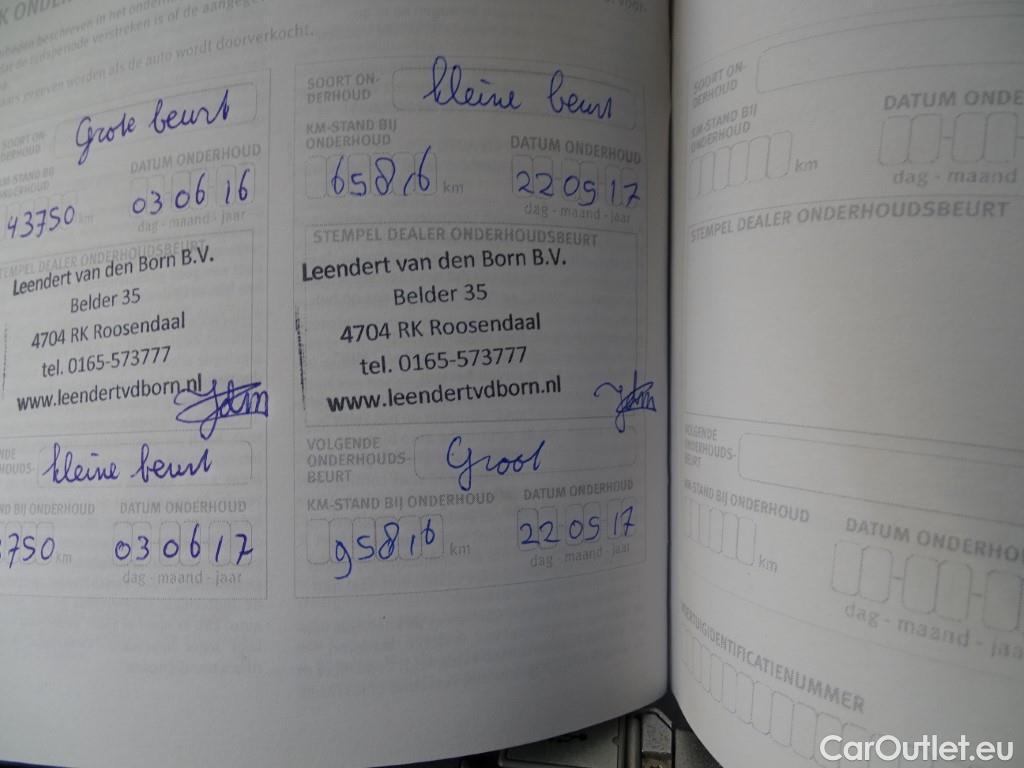 K ONDER
de tijdsperiode verstreken is of de aangege
geven worden als de auto wordt doorverkocht.
SOORT ON-
DERHOUD
Grote beurt
KM-STAND BIJ
ONDERHOUD
43750 km
DATUM ONDERHOUD
03 06 16
dag - maand - jaar
STEMPEL DEALER ONDERHOUDSBEURT
Leendert van den Born B.V.
Belder 35
4704 RK Roosendaal
tel. 0165-573777
www.leendertvdborn.nl
NDE
HOUDS-
kleine beurt
ND BIJ ONDERHOUD
3750 km
DATUM ONDERHOUD
03 06 17
dag - maand - jaar
SOORT ON-
DERHOUD
kleine beurt
KM-STAND BIJ
ONDERHOUD
65816 km
DATUM ONDERHOUD
22 05 17
dag - maand - jaar
STEMPEL DEALER ONDERHOUDSBEURT
Leendert van den Born B.V.
Belder 35
4704 RK Roosendaal
tel. 0165-573777
www.leendertvdborn.nl
VOLGENDE
ONDERHOUDS-
BEURT
Groot
KM-STAND BIJ ONDERHOUD
95816 km
DATUM ONDERHOUD
22 05 17
dag - maand - jaar
SOORT ON-
DERHOUD
KM-STAND BIJ
ONDERHOUD
km
DATUM ONDE
dag - maand
STEMPEL DEALER ONDERHOUDSBEURT
VOLGENDE
ONDERHOUDS-
BEURT
KM-STAND BIJ ONDERHOUD
km
DATUM ONDERHOU
dag - maand - jaa
VOERTUIGIDENTIFICATIENUMMER
CarOutlet.eu